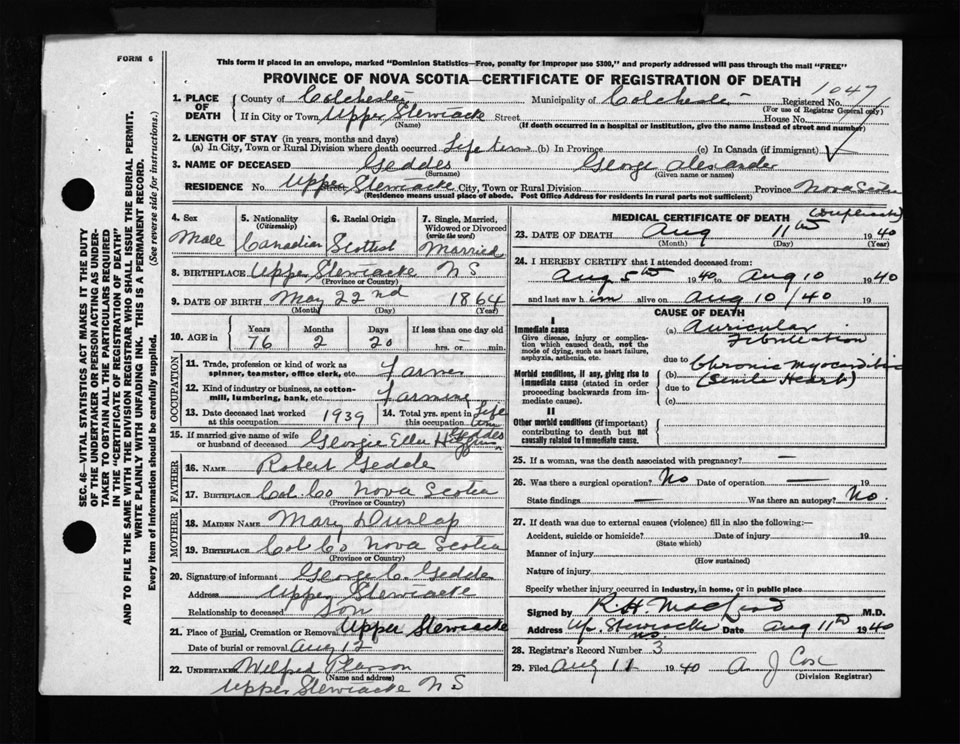 FORM 6
This form if placed in an envelope, marked "Dominion Statistics—Free, penalty for improper use $300," and properly addressed will pass through the mail "FREE"
PROVINCE OF NOVA SCOTIA—CERTIFICATE OF REGISTRATION OF DEATH
1047
1. PLACE OF DEATH County of Colchester Municipality of Colchester Registered No.
(For use of Registrar General only)
If in City or Town Upper Stewiacke Street House No.
(Name) (If death occurred in a hospital or institution, give the name instead of street and number)
2. LENGTH OF STAY (in years, months and days)
(a) In City, Town or Rural Division where death occurred Life time (b) In Province (c) In Canada (if immigrant)
3. NAME OF DECEASED Geddes George Alexander
(Surname) (Given name or names)
RESIDENCE No. Upper Stewiacke City, Town or Rural Division Province Nova Scotia
(Residence means usual place of abode. Post Office Address for residents in rural parts not sufficient)
4. Sex Male
5. Nationality (Citizenship) Canadian
6. Racial Origin Scottish
7. Single, Married, Widowed or Divorced (write the word) Married
8. BIRTHPLACE Upper Stewiacke N S
(Province or Country)
9. DATE OF BIRTH May 22nd 1864
(Month) (Day) (Year)
10. AGE in Years 76 Months 2 Days 20 If less than one day old hrs. or min.
OCCUPATION
11. Trade, profession or kind of work as spinner, teamster, office clerk, etc. Farmer
12. Kind of industry or business, as cotton-mill, lumbering, bank, etc. Farming
13. Date deceased last worked at this occupation 1939
14. Total yrs. spent in Life time
15. If married give name of wife or husband of deceased Georgie Ellen Geddes
FATHER
16. NAME Robert Geddes
17. BIRTHPLACE Col. Co Nova Scotia
(Province or Country)
MOTHER
18. MAIDEN NAME Mary Dunlap
19. BIRTHPLACE Col Co Nova Scotia
(Province or Country)
20. Signature of informant George C. Geddes
Address Upper Stewiacke
Relationship to deceased Son
21. Place of Burial, Cremation or Removal Upper Stewiacke
Date of burial or removal Aug 12
22. UNDERTAKER Wilfred Pearson
(Name and address)
Upper Stewiacke N S
MEDICAL CERTIFICATE OF DEATH (Duplicate)
23. DATE OF DEATH Aug 11th 1940
(Month) (Day) (Year)
24. I HEREBY CERTIFY that I attended deceased from:
Aug 5th 1940 to Aug 10 1940
and last saw him alive on Aug 10/40 19
CAUSE OF DEATH
I
Immediate cause
Give disease, injury or complication which caused death, not the mode of dying, such as heart failure, asphyxia, asthenia, etc.
(a) Auricular Fibrillation
due to
Morbid conditions, if any, giving rise to immediate cause (stated in order proceeding backwards from immediate cause).
(b) Chronic Myocarditis
due to (Senile Heart)
(c)
II
Other morbid conditions (if important) contributing to death but not causally related to immediate cause.
25. If a woman, was the death associated with pregnancy? —
26. Was there a surgical operation? No Date of operation — 19
State findings — Was there an autopsy? No
27. If death was due to external causes (violence) fill in also the following:
Accident, suicide or homicide? Date of injury 19
(State which)
Manner of injury
(How sustained)
Nature of injury
Specify whether injury occurred in industry, in home, or in public place
Signed by R H MacLeod M.D.
Address Up. Stewiacke N.S. Date Aug 11th 1940
28. Registrar's Record Number 3
29. Filed Aug 11 1940 A J Cox
(Division Registrar)
SEC. 46—VITAL STATISTICS ACT MAKES IT THE DUTY
OF THE UNDERTAKER OR PERSON ACTING AS UNDER-
TAKER TO OBTAIN ALL THE PARTICULARS REQUIRED
IN THE "CERTIFICATE OF REGISTRATION OF DEATH"
AND TO FILE THE SAME WITH THE DIVISION REGISTRAR WHO SHALL ISSUE THE BURIAL PERMIT.
WRITE PLAINLY WITH UNFADING INK. THIS IS A PERMANENT RECORD.
Every item of information should be carefully supplied. (See reverse side for instructions.)